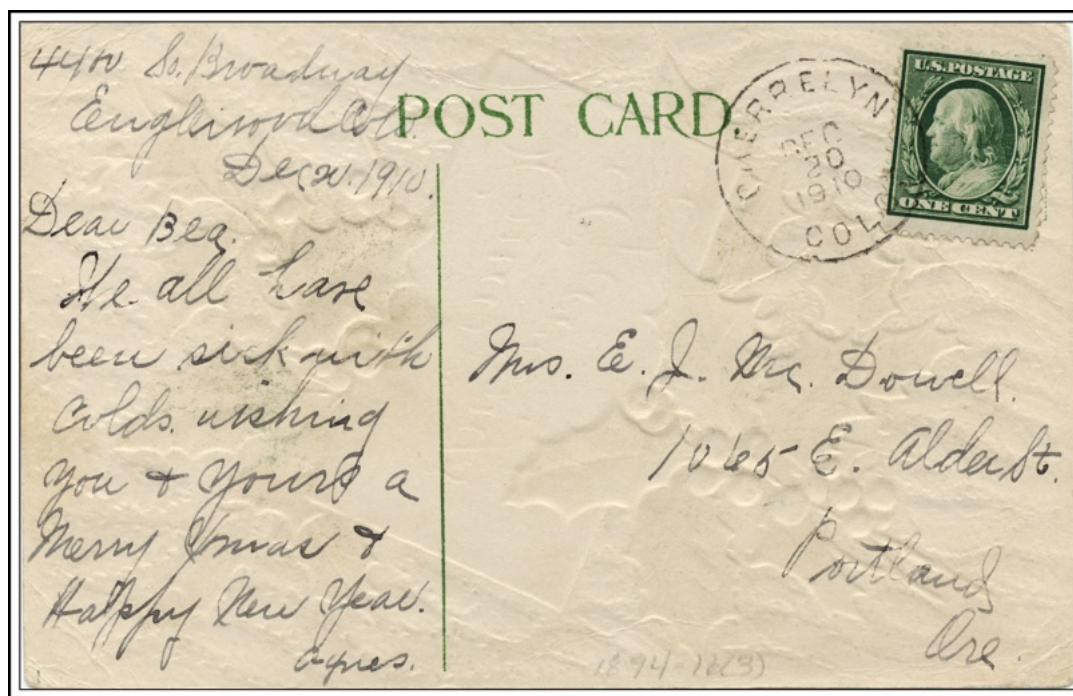 So. Broadway
Englewood Colo.
Dec 20. 1910.
Dear Bea.
We all have
been sick with
colds. wishing
you & yours a
Merry Xmas &
Happy New Year.
Agnes.
POST CARD
CHERRELYN
DEC
20
1910
COLO
U.S. POSTAGE
ONE CENT
Mrs. E. J. Mc. Dowell.
1065 E. Alder St.
Portland
Ore.